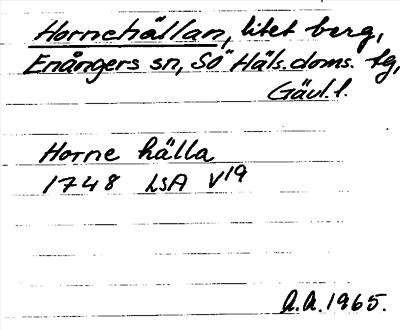 Hornehällan, litet berg,
Enångers sn, SÖ Häls. doms. tg,
Gävl. l.
Horne hälla
1748 LSA V19
A.A. 1965.